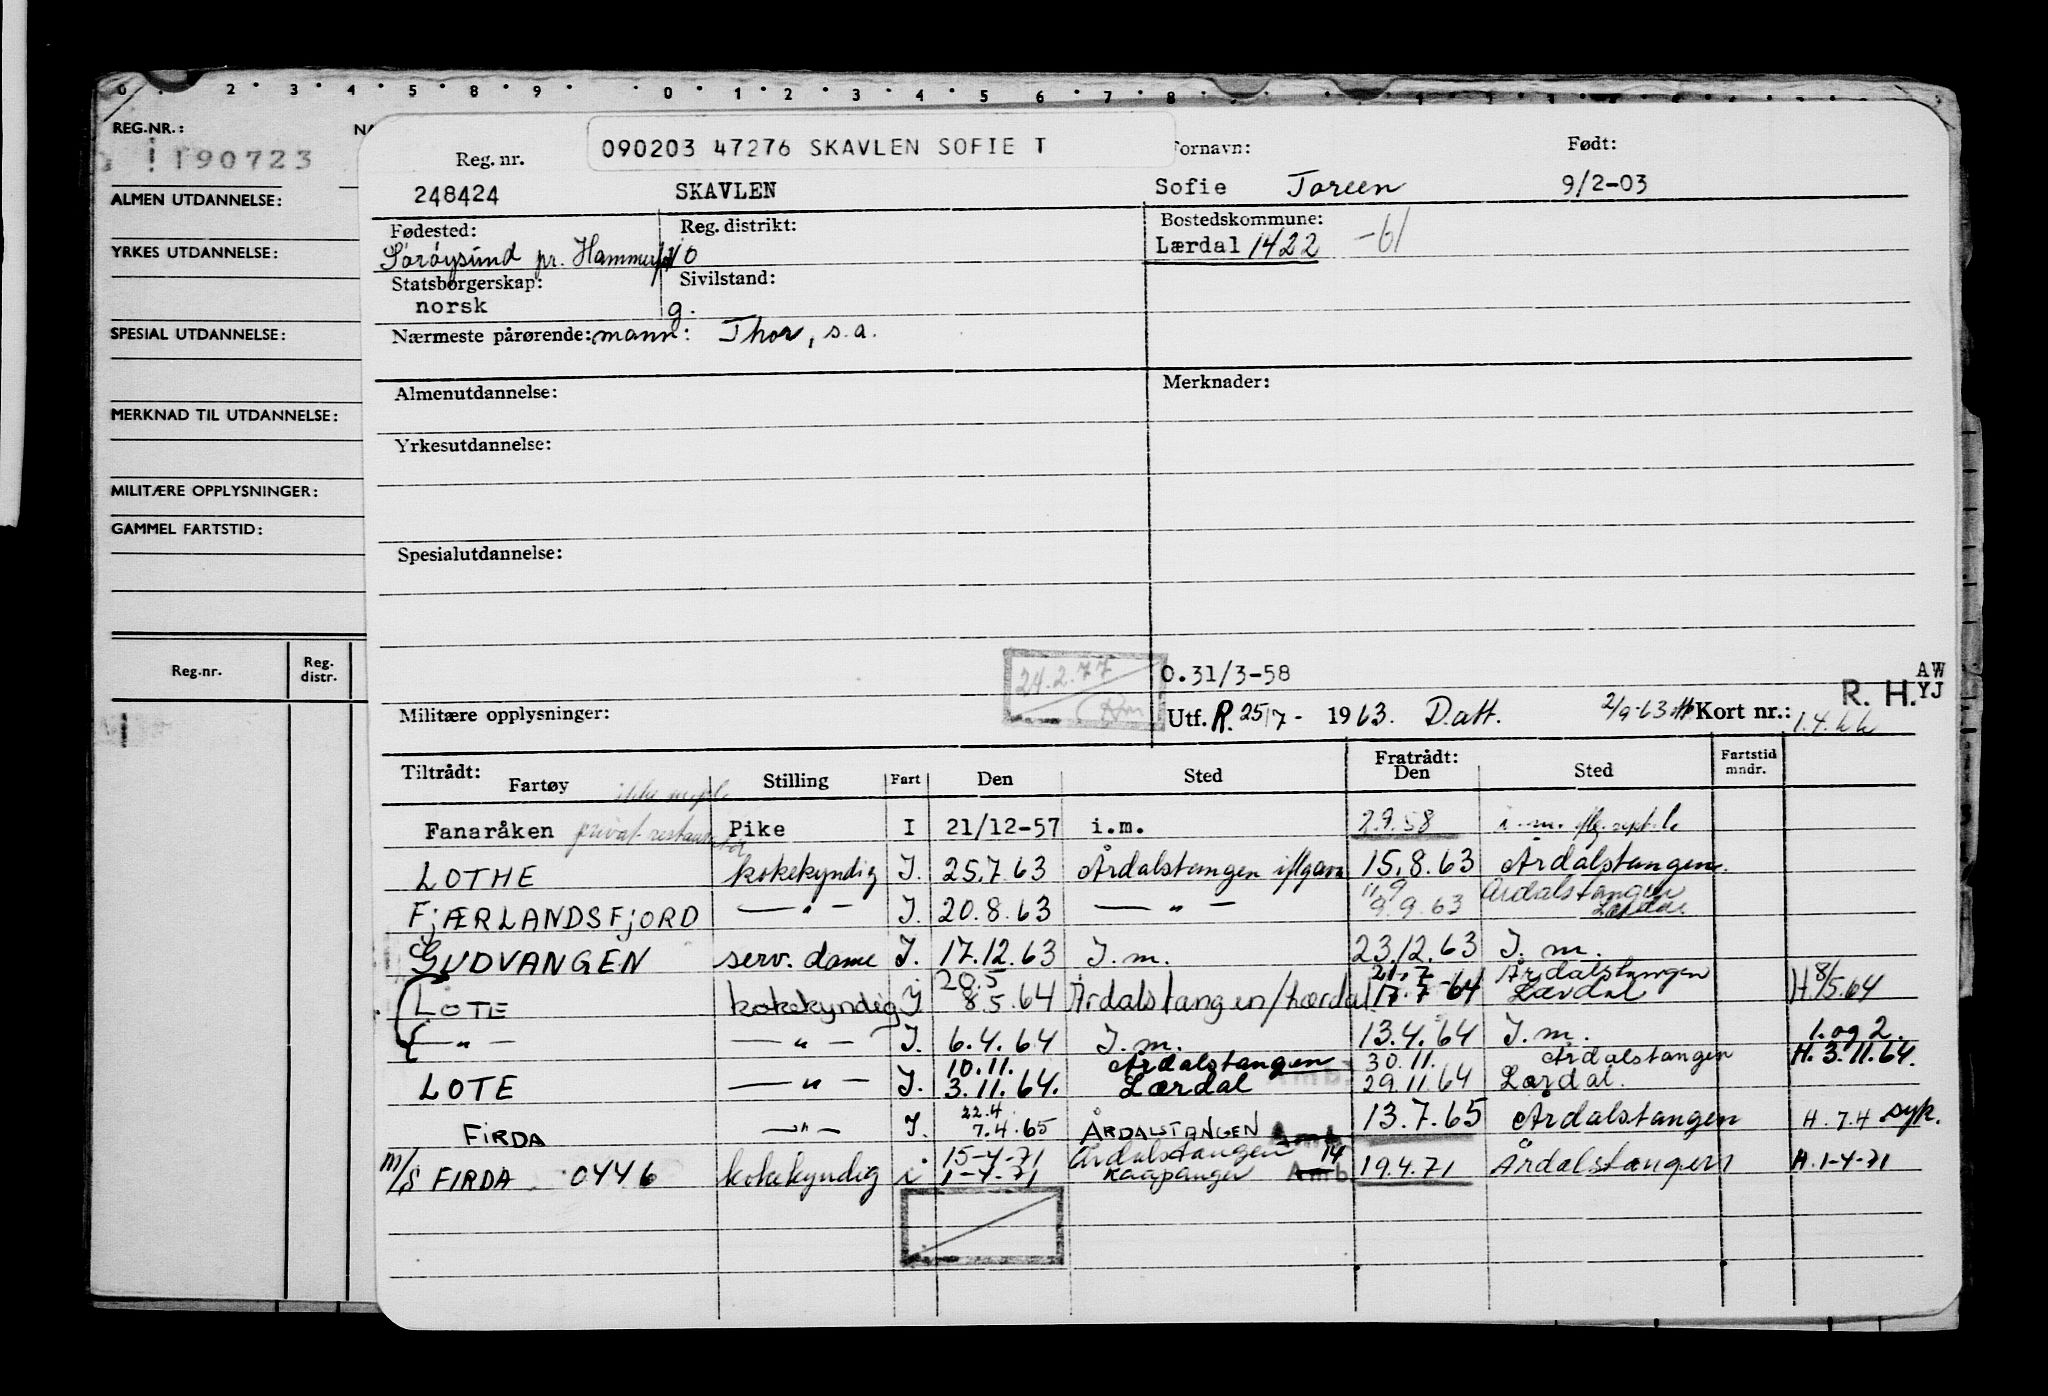 0 2 3 4 5 8 9 0 1 2 3 4 5 6 7 8
REG.NR.:
190723
ALMEN UTDANNELSE:
YRKES UTDANNELSE:
SPESIAL UTDANNELSE:
MERKNAD TIL UTDANNELSE:
MILITÆRE OPPLYSNINGER:
GAMMEL FARTSTID:
Reg.nr. Reg. distr.
090203 47276 SKAVLEN SOFIE T
Reg. nr. Fornavn: Født:
248424 SKAVLEN Sofie Toreen 9/2-03
Fødested: Reg. distrikt: Bostedskommune:
Sørøysund pr. Hammerfest 10 Lærdal 1422 -61
Statsborgerskap: Sivilstand:
norsk g.
Nærmeste pårørende: mann: Thor, s.a.
Almenutdannelse: Merknader:
Yrkesutdannelse:
Spesialutdannelse:
24.2.77
O.31/3-58
AW
R. H. YJ
Militære opplysninger: Utf. R. 25/7 - 1963. D.att. 2/9-63 Kort nr.: 1.4.66
Tiltrådt: Fratrådt: Fartstid mndr.
Fartøy Stilling Fart Den Sted Den Sted
Fanaråken privat-restauratør Pike I 21/12-57 i.m. 2.9.58 i.m.
LOTHE kokekyndig I. 25.7.63 Årdalstangen 15.8.63 Årdalstangen.
11/9 Årdalstangen
FJÆRLANDSFJORD — " — I. 20.8.63 — " — 9.9.63 Lærdal
GUDVANGEN serv. dame I. 17.12.63 I.m. 23.12.63 I.m.
20.5 21.7 Årdalstangen 8/
LOTE kokekyndig I. 8.5.64 Årdalstangen/Lærdal 17.7-64 Lærdal H. 5.64
— " — — " — I. 6.4.64 I.m. 13.4.64 I.m. 1. og 2.
10.11. Årdalstangen 30.11. Årdalstangen H. 3.11.64.
LOTE — " — I. 3.11.64. Lærdal 29.11.64 Lærdal.
22.4.
FIRDA — " — I. 7.4.65 ÅRDALSTANGEN Amb 13.7.65 Årdalstangen H. 7.4 syk.
15-4-71 Årdalstangen 14
M/S FIRDA 0446 kokekyndig i 1-4-71 Kaupanger Amb. 19.4.71 Årdalstangen H. 1-4-71